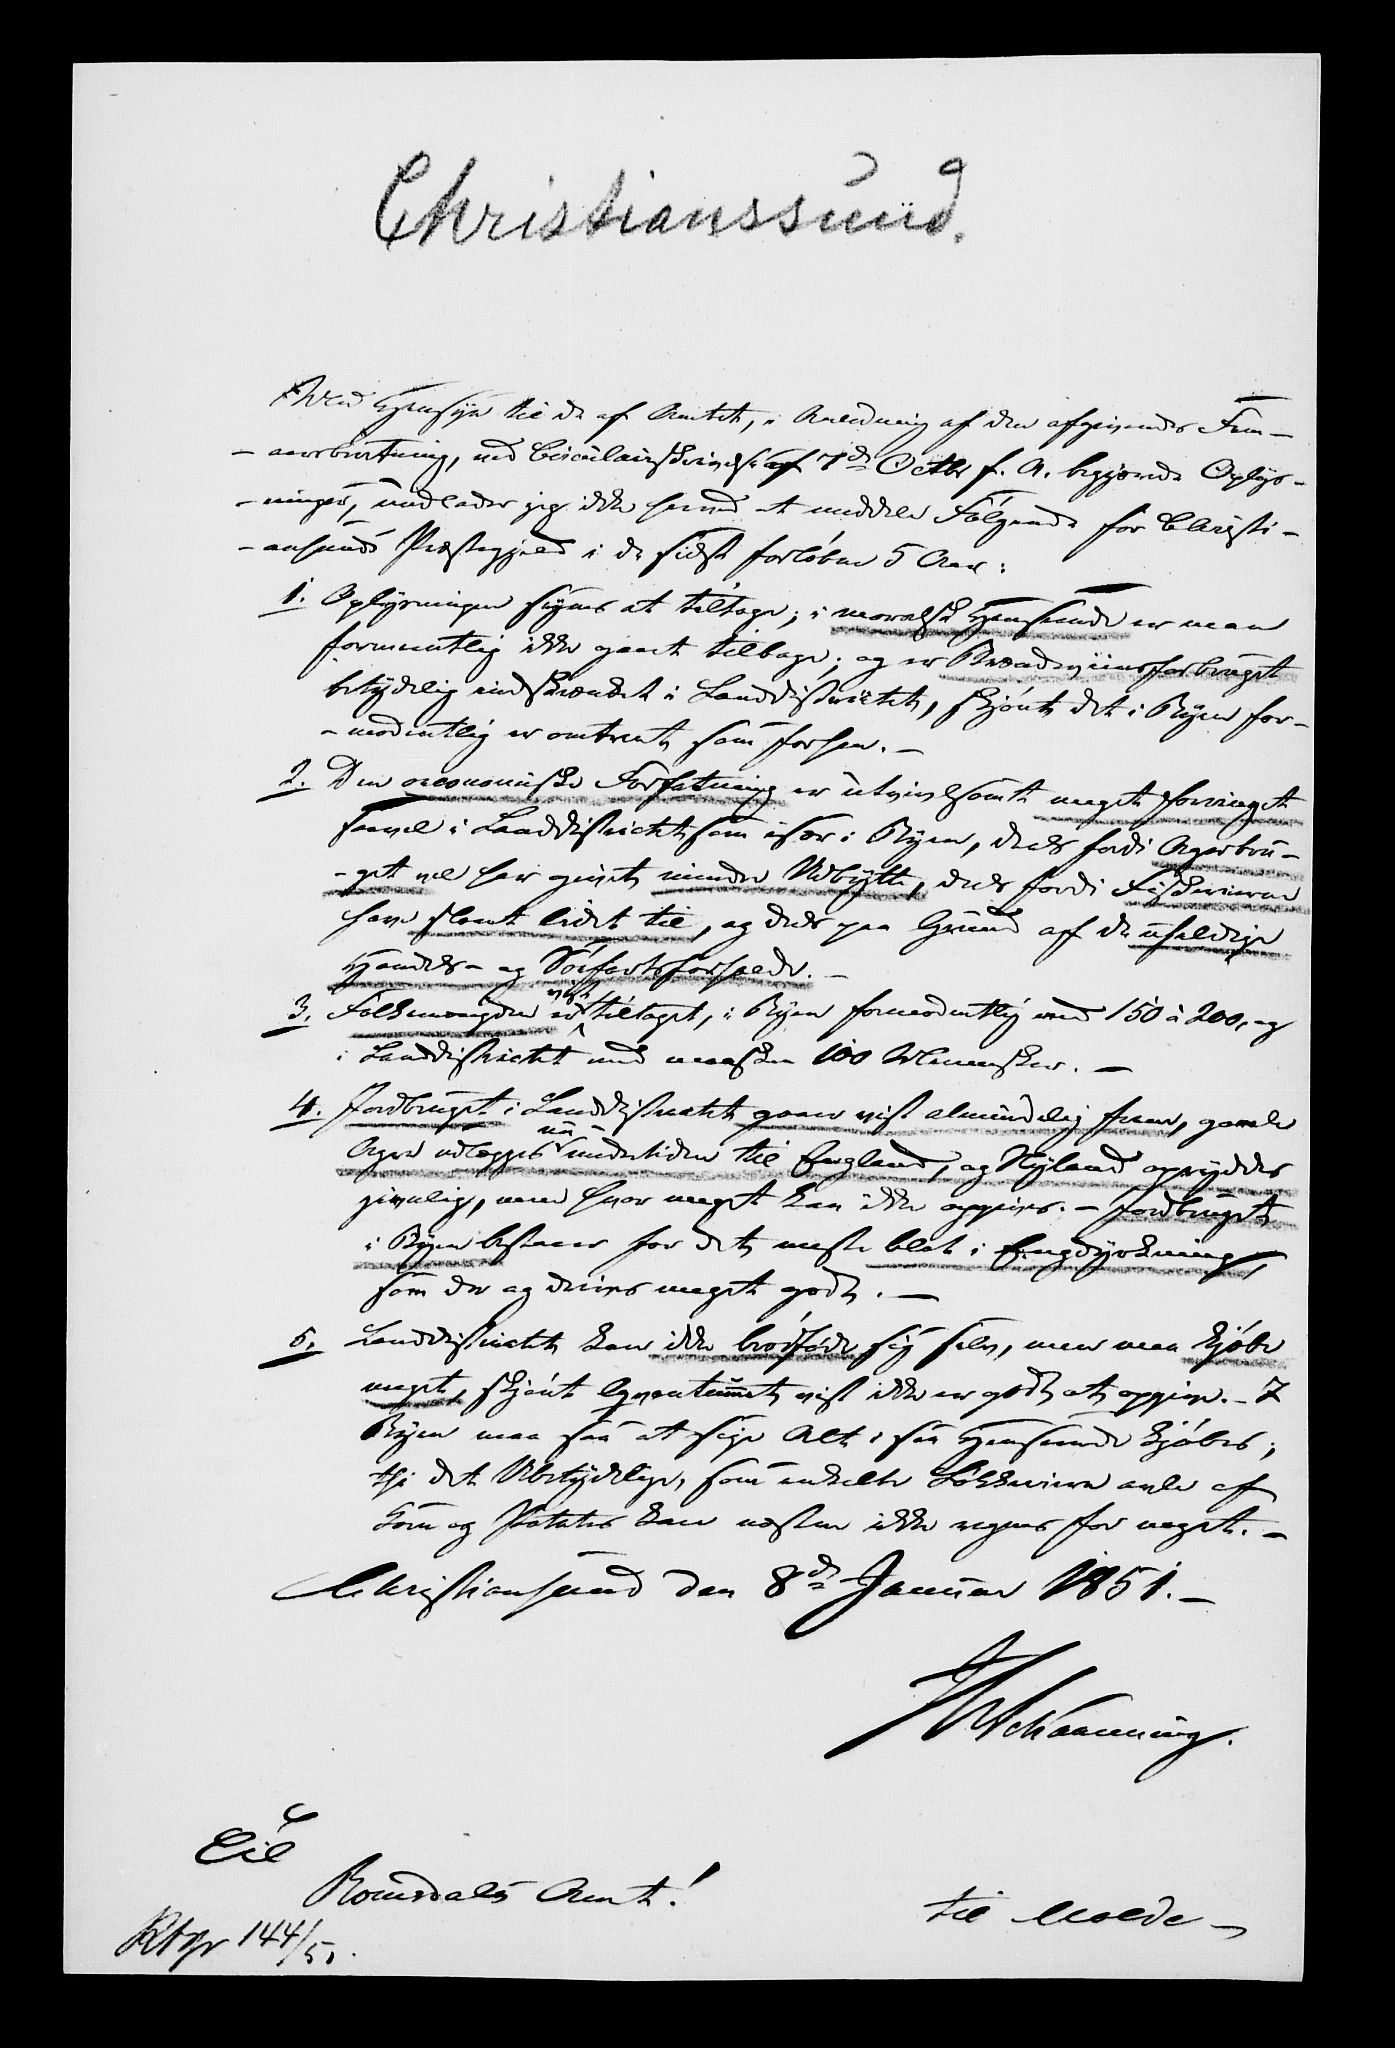 Christianssund.
Med Hensyn til de af Amtet, i Anledning af den afgivendes Fem-
-aarsberetning, ved Circulairskrivelse af 7de Octbr f. A. begjærede Oplys-
-ninger, undlader jeg ikke herved at meddele Følgende for Christi-
-ansunds Præstegjeld i de sidst forløbne 5 Aar:
1. Oplysningen synes at tiltage; i moralsk Henseende er man
formentlig ikke gaaet tilbage; og er Brændeviinsforbruget
betydelig indskrænket i Landdistrictet, skjønt det i Byen for-
-modentlig er omtrent som forhen. -
2. Den oeconomiske Forfatning er utvivlsomt meget forringet
saavel i Landdistrictet som især i Byen, deels fordi Agerbru-
-get vel har givet mindre Udbytte, deels fordi Fiskerierne
have slaaet lidet til, og deels paa Grund af de uheldige
Handels- og Söefartsforholde. -
3. Folkemængden er vist tiltaget, i Byen formodentlig med 150 à 200, og
i Landdistrictet med maaskee 100 Mennesker. -
4. Jordbruget i Landdistrictet gaaer vist almindelig frem, gamle
Agre udlægges nu undertiden til England, og Nyland opryddes
jevnlig, men hvor meget kan ikke opgives. - Jordbruget
i Byen bestaaer for det meste blot i Engdyrkning,
som der og drives meget godt. -
5. Landdistrictet kan ikke brödföde sig selv, men maa kjöbe
meget, skjönt Qvantummet vist ikke er godt at opgive. - I
Byen maa saa at sige Alt i saa Henseende kjöbes;
thi det Ubetydelige, som enkelte Lökkeeiere avle af
Korn og Potetes kan næsten ikke regnes for noget. -
Christiansund den 8de Januar 1851. -
Schaanning.
Til
Romsdals Amt!
til Molde -
144/51.